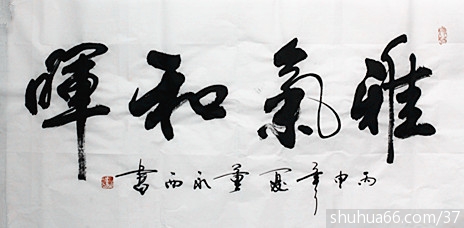 雅氣和暉
丙申年夏董永西書
shuhua66.com/37